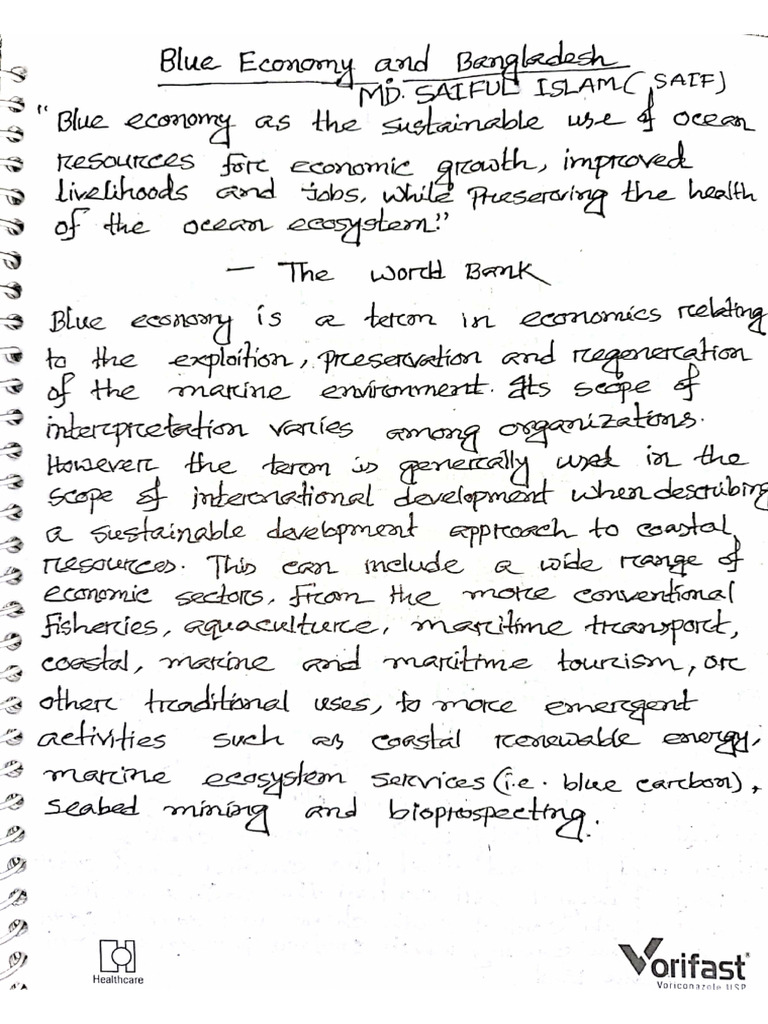 Blue Economy and Bangladesh
MD. SAIFUL ISLAM (SAIF)
"Blue economy as the sustainable use of ocean
resources for economic growth, improved
livelihoods and jobs, while preserving the health
of the ocean ecosystem."
– The World Bank
Blue economy is a term in economics relating
to the exploition, preservation and regeneration
of the marine environment. Its scope of
interpretation varies among organizations.
However the term is generally used in the
scope of international development when describing
a sustainable development approach to coastal
resources. This can include a wide range of
economic sectors, from the more conventional
fisheries, aquaculture, maritime transport,
coastal, marine and maritime tourism, or
other traditional uses, to more emergent
activities such as coastal renewable energy,
marine ecosystem services (i.e. blue carbon),
seabed mining and bioprospecting.
Healthcare
Vorifast
Voriconazole USP